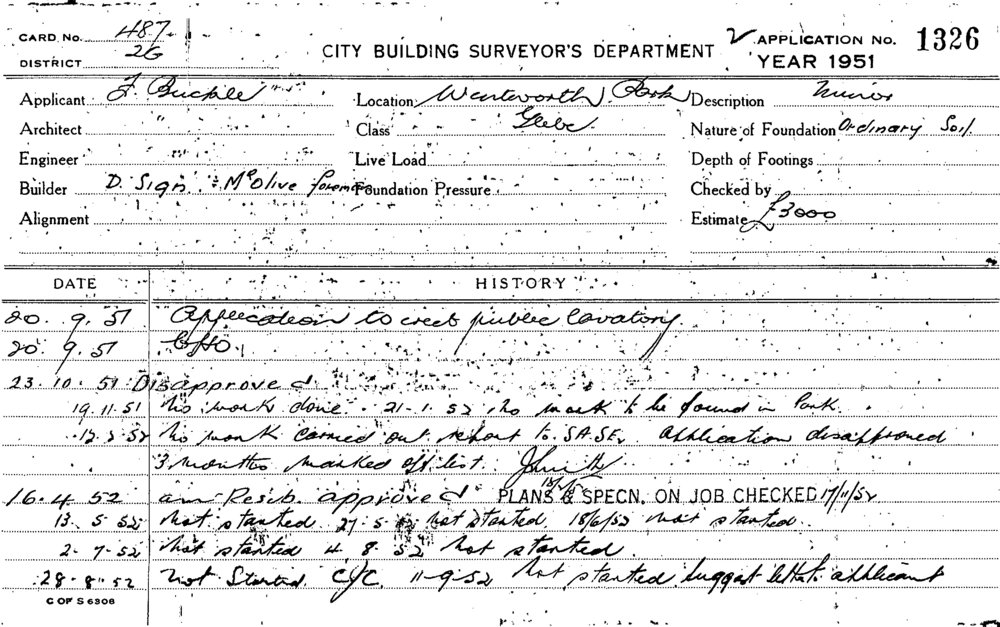 CARD No. 487
DISTRICT 26
CITY BUILDING SURVEYOR'S DEPARTMENT
APPLICATION No. 1326
YEAR 1951
Applicant F. Buckle Location Wentworth Park Description Minor
Architect Class Glebe. Nature of Foundation Ordinary Soil
Engineer Live Load Depth of Footings
Builder D. Sign. Foundation Pressure Checked by
Alignment Estimate £3000
DATE HISTORY
20. 9. 51 Application to erect public lavatory.
20. 9. 51
23. 10. 51 Disapproved
19.11.51 No work done. 21.1.52 No work to be found in Park.
No work carried out report to Application disapproved
3 months marked off list.
16. 4. 52 approved PLANS & SPECN. ON JOB CHECKED 17/11/52
13. 5. 52 Not started 27-5-52 Not started. 18/6/52 Not started.
2. 7. 52 Not started 4. 8. 52 Not started.
28. 8. 52 Not started. 11-9-52 Not started. Suggest letter to applicant
C OF S 6306